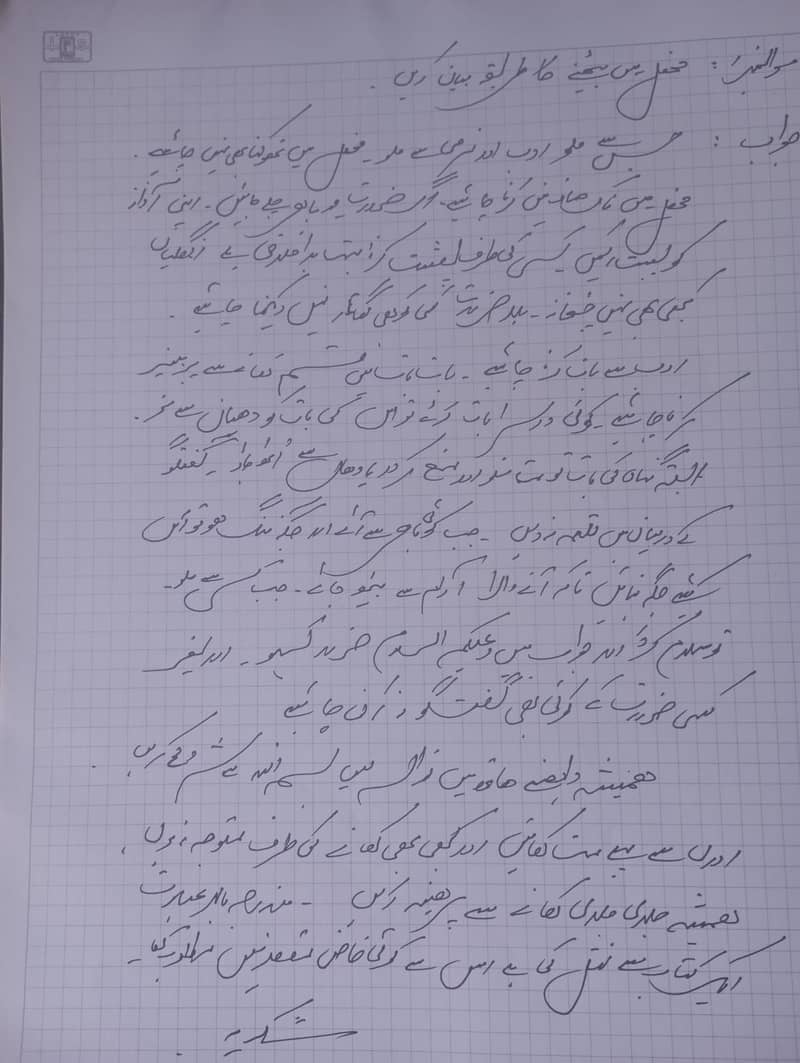 سوال نمبر ۱: محفل میں بیٹھنے کا طریقہ بیان کریں۔
جواب: جس سے ملو ادب اور نرمی سے ملو۔ محفل میں تھوکنا بھی نہیں چاہئیے۔
محفل میں ناک صاف نہیں کرنا چاہئیے اگر ضرورت ہو باہر چلے جائیں۔ اپنی آواز
کو پست رکھیں کسی کی طرف پشت کرنا بہت بداخلاقی ہے انگلیاں
کبھی بھی نہیں چٹخانا۔ بلاضرورت کسی کو بھی نہیں دیکھنا چاہئیے۔
ادب سے بات کرنا چاہئیے۔ بات بات میں قسم کھانے سے پرہیز
کرنا چاہئیے۔ کوئی دوسرا بات کرے تو اس کی بات کو دھیان سے سنو۔
البتہ گناہ کی بات تو مت سنو اور منع کردو یا وہاں سے اُٹھ جاؤ۔ گفتگو
کے درمیان میں نہ دیں۔ جب کوئی باہر سے آئے اور جگہ تنگ ہو تو اس
کیلئے جگہ بنائیں تاکہ آنے والا آرام سے بیٹھ جائے۔ جب کسی سے ملو۔
تو سلام کرو اور جواب میں وعلیکم السلام ضرور کہو۔ اور بغیر
کسی ضرورت کے کوئی بھی گفتگو نہ کرنی چاہئیے
ھمیشہ دایئنے ھاتھ میں بسم اللہ سے شروع کریں۔
اوروں سے پہلے مت کھائیں اور کبھی بھی کھانے کی طرف متوجہ نہ ہوں۔
ھمیشہ جلدی جلدی کھانے سے پرھیز کریں۔ مندرجہ بالا عبارت
ایک کتاب سے نقل کی ہے اس سے کوئی خاص مقصد نہیں
شکریہ۔